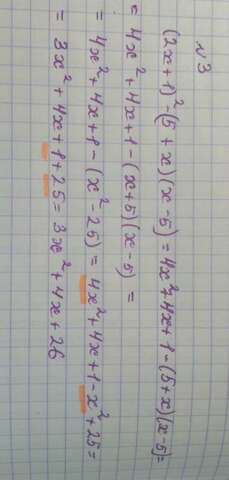 №3
(2x+1)²-(5+x)(x-5)=4x²+4x+1-(5+x)(x-5)=
=4x²+4x+1-(x+5)(x-5)=
=4x²+4x+1-(x²-25)=4x²+4x+1-x²+25=
=3x²+4x+1+25=3x²+4x+26